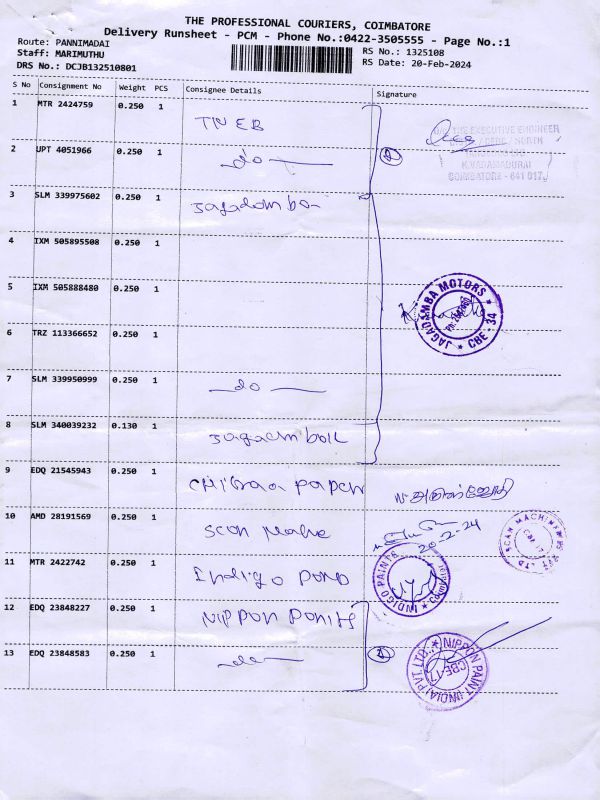 THE PROFESSIONAL COURIERS, COIMBATORE
Delivery Runsheet - PCM - Phone No.:0422-3505555 - Page No.:1
Route: PANNIMADAI
Staff: MARIMUTHU
RS No.: 1325108
DRS No.: DCJB132510801
RS Date: 20-Feb-2024
S No Consignment No Weight PCS Consignee Details Signature
1 MTR 2424759 0.250 1 TNEB
THE EXECUTIVE ENGINEER
NORTH
K.VADAMADURAI
COIMBATORE - 641 017
2 UPT 4051966 0.250 1 do
3 SLM 339975602 0.250 1
4 IXM 505895508 0.250 1
5 IXM 505888480 0.250 1
JAGADEMBA MOTORS * CBE-34 *
6 TRZ 113366652 0.250 1
7 SLM 339950999 0.250 1 do
8 SLM 340039232 0.130 1
9 EDQ 21545943 0.250 1
10 AMD 28191569 0.250 1 Scan
20-2-24
11 MTR 2422742 0.250 1 Indigo
INDIGO PAINTS
12 EDQ 23848227 0.250 1 Nippon
13 EDQ 23848583 0.250 1 do
NIPPON PAINT (INDIA) PVT. LTD.,
CBE-17